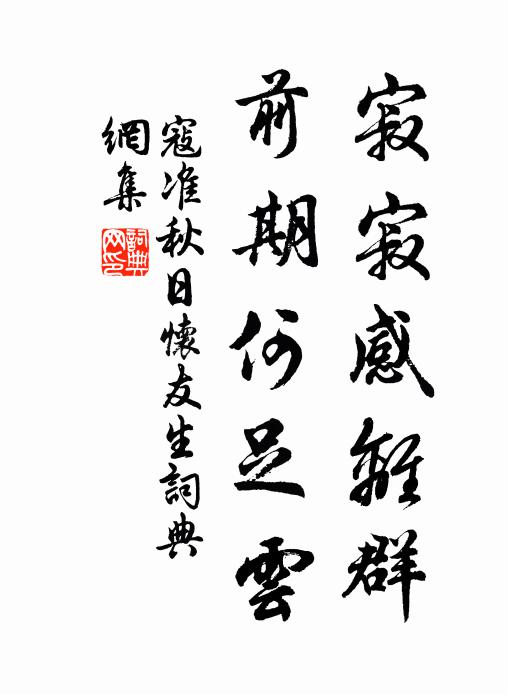 寂寂感離群
前期何足雲
寇准秋日懷友生詞典
網集
詞典
网印